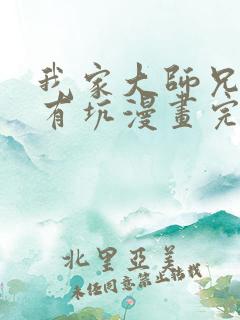 我家大師兄
有坑漫畫完
北里亞美
未任同意禁止転載